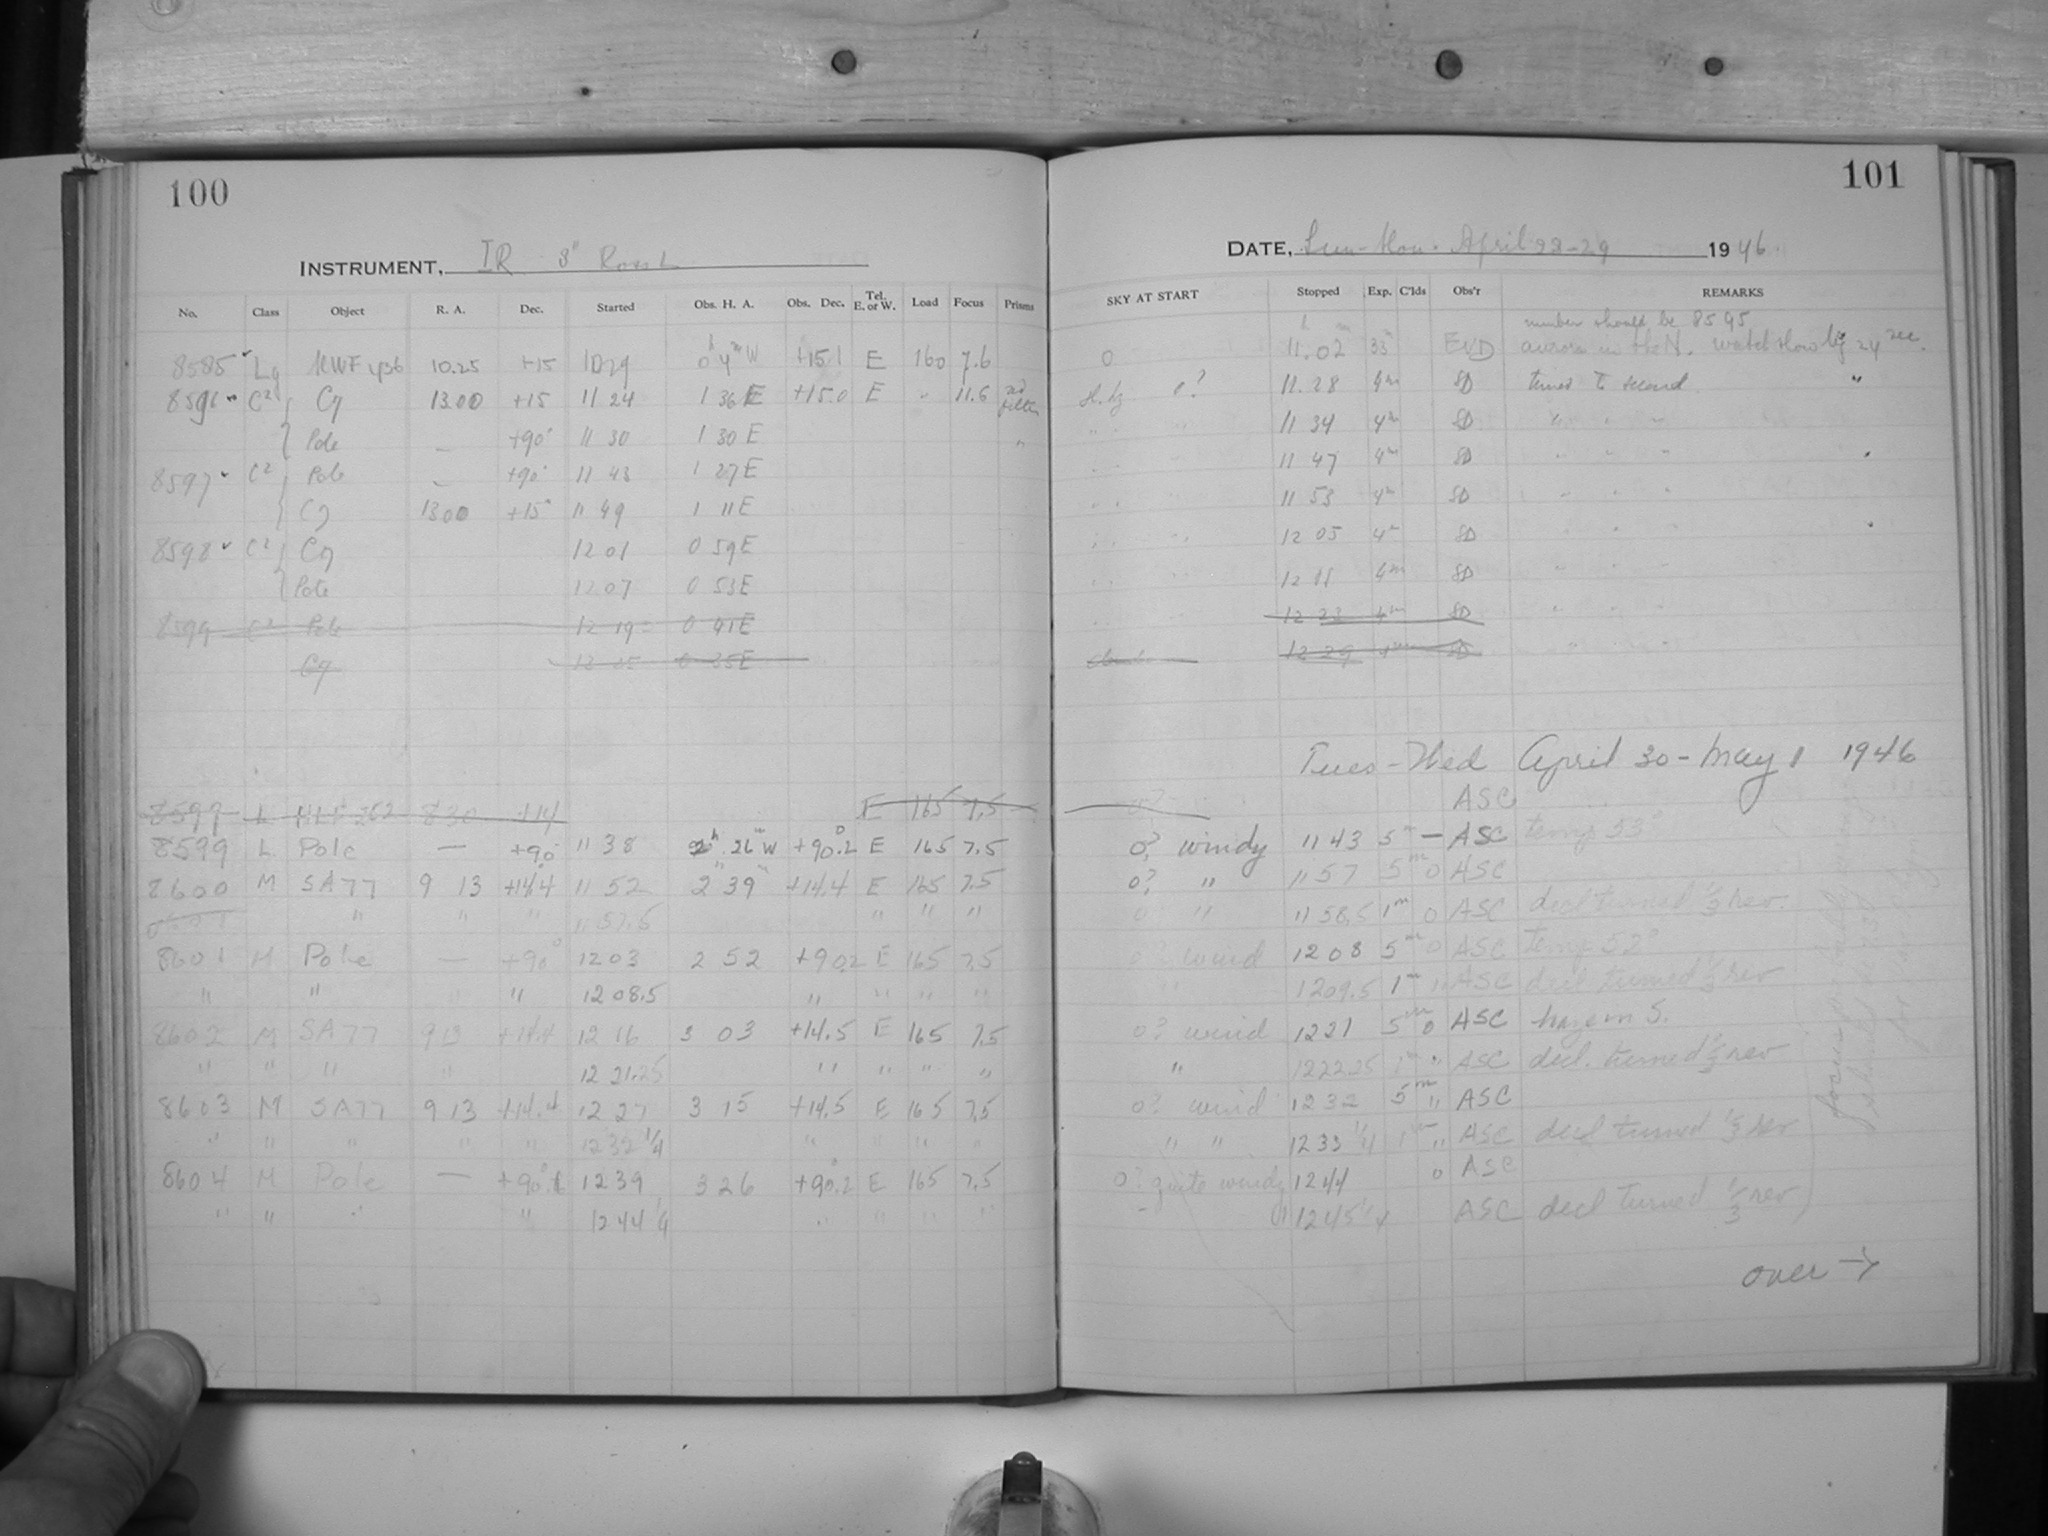 100
INSTRUMENT, IR 3" Ross
No. Class Object R. A. Dec. Started Obs. H. A. Obs. Dec. Tel. E. or W. Load Focus Prisms
8585 Lg MWF 456 10.25 +15 1029 0h 4m W +15.1 E 160 7.6
8596 C2 Cg 13.00 +15 11 24 1 36 E +15.0 E " 11.6 filter
Pole — +90° 11 30 1 30 E "
8597 C2 Pole — +90° 11 43 1 27 E
Cg 13.00 +15° 11 49 1 11 E
8598 C2 Cg 12 01 0 59 E
Pole 12 07 0 53 E
8599 C2 Pole 12 19 0 41 E
Cg 12 25 0 35 E
8599 L 830 +14 E 165 7.5
8599 L Pole — +90° 11 38 2h 26m W +90.2 E 165 7.5
8600 M SA77 9 13 +14.4 11 52 2 39 +14.4 E 165 7.5
" " " 11 57.5 " " "
8601 M Pole — +90° 1203 2 52 +90.2 E 165 7.5
" " " " 1208.5 " " " "
8602 M SA77 9 13 +14.4 12 16 3 03 +14.5 E 165 7.5
" " " " 12 21.25 " " " "
8603 M SA77 9 13 +14.4 12 27 3 15 +14.5 E 165 7.5
" " " " " 1232 1/4 " " " "
8604 M Pole — +90° 1239 3 26 +90.2 E 165 7.5
" " " " 1244 1/4 " " " "
101
DATE, Sun-Mon. April 28-29 1946
SKY AT START Stopped Exp. C'lds Obs'r REMARKS
number should be 8595
0 11.02 33m EVD aurora in the N. watch slow by 24 sec.
sl. hz 0? 11.28 4m SD times to second "
" " 11 34 4m SD " " "
" " 11 47 4m SD " " "
" " 11 53 4m SD " " "
" " 12 05 4m SD " " "
" " 12 11 4m SD " " "
" 12 23 4m SD " " "
clouds 12 29 4m SD " " "
Tues-Wed April 30-May 1 1946
0? ASC
0? windy 11 43 5m — ASC temp 53°
0? " 11 57 5m 0 ASC
0? " 11 58.5 1m 0 ASC decl turned 1/3 rev.
0? wind 1208 5m 0 ASC temp 52°
" 1209.5 1m " ASC decl turned 1/3 rev
0? wind 1221 5m 0 ASC haze in S.
" 1222.25 1m " ASC decl. turned 1/3 rev
0? wind 1232 5m " ASC
" " 1233 1/4 1m " ASC decl turned 1/3 rev
0? quite windy 1244 0 ASC
" " 1245 1/4 ASC decl turned 1/3 rev
over →